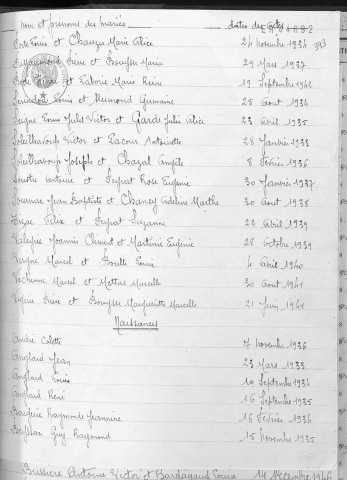 nom et prenoms des mariés dates des actes
Louis et Chanzy Marie Alice 24 Novembre 1934
Pierre et Marie 29 Mars 1937
et Laborie Marie Reine 19 Septembre 1942
Louis et Germaine 25 Aout 1934
Louis Jules Victor et Garde Julie Alice 23 Avril 1935
Soleilhavoup Victor et Lacour Antoinette 28 Janvier 1933
Soleilhavoup Joseph et Chazal Angèle 8 Février 1936
Antoine et Rose Eugenie 30 Janvier 1937
Jean Baptiste et Chancy Adeline Marthe 30 Aout 1935
Félix et Suzanne 22 Avril 1939
Joannis Clement et Martinie Eugenie 28 Octobre 1939
Vergne Marcel et Louise 4 Avril 1940
Marcel et Mettas Marcelle 30 Aout 1941
Pierre et Bouysse Marguerite Marcelle 21 Juin 1941
Naissances
André Colette 7 Novembre 1936
Anglard Jean 23 Mars 1933
Anglard Louis 10 Septembre 1934
Anglard René 16 Septembre 1935
Raymonde Jeannine 16 Février 1934
Guy Raymond 15 Novembre 1935
Bussière Antoine Victor et Bardagaud Louise 14 Decembre 1946